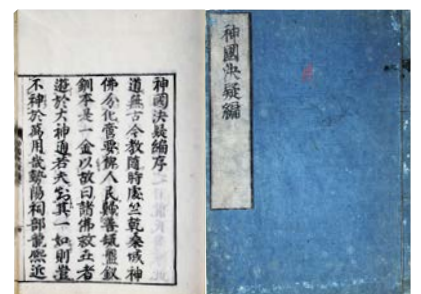 神國決疑編
神國決疑編序
道無古今教隨時處竺乾桑域神
佛分化管要俾人民歸善猶盤釵
釧本是一金以故曰諸佛救世者
遊於大神通若夫其一如則豈
不神於萬用哉勢陽祠部龍熈近